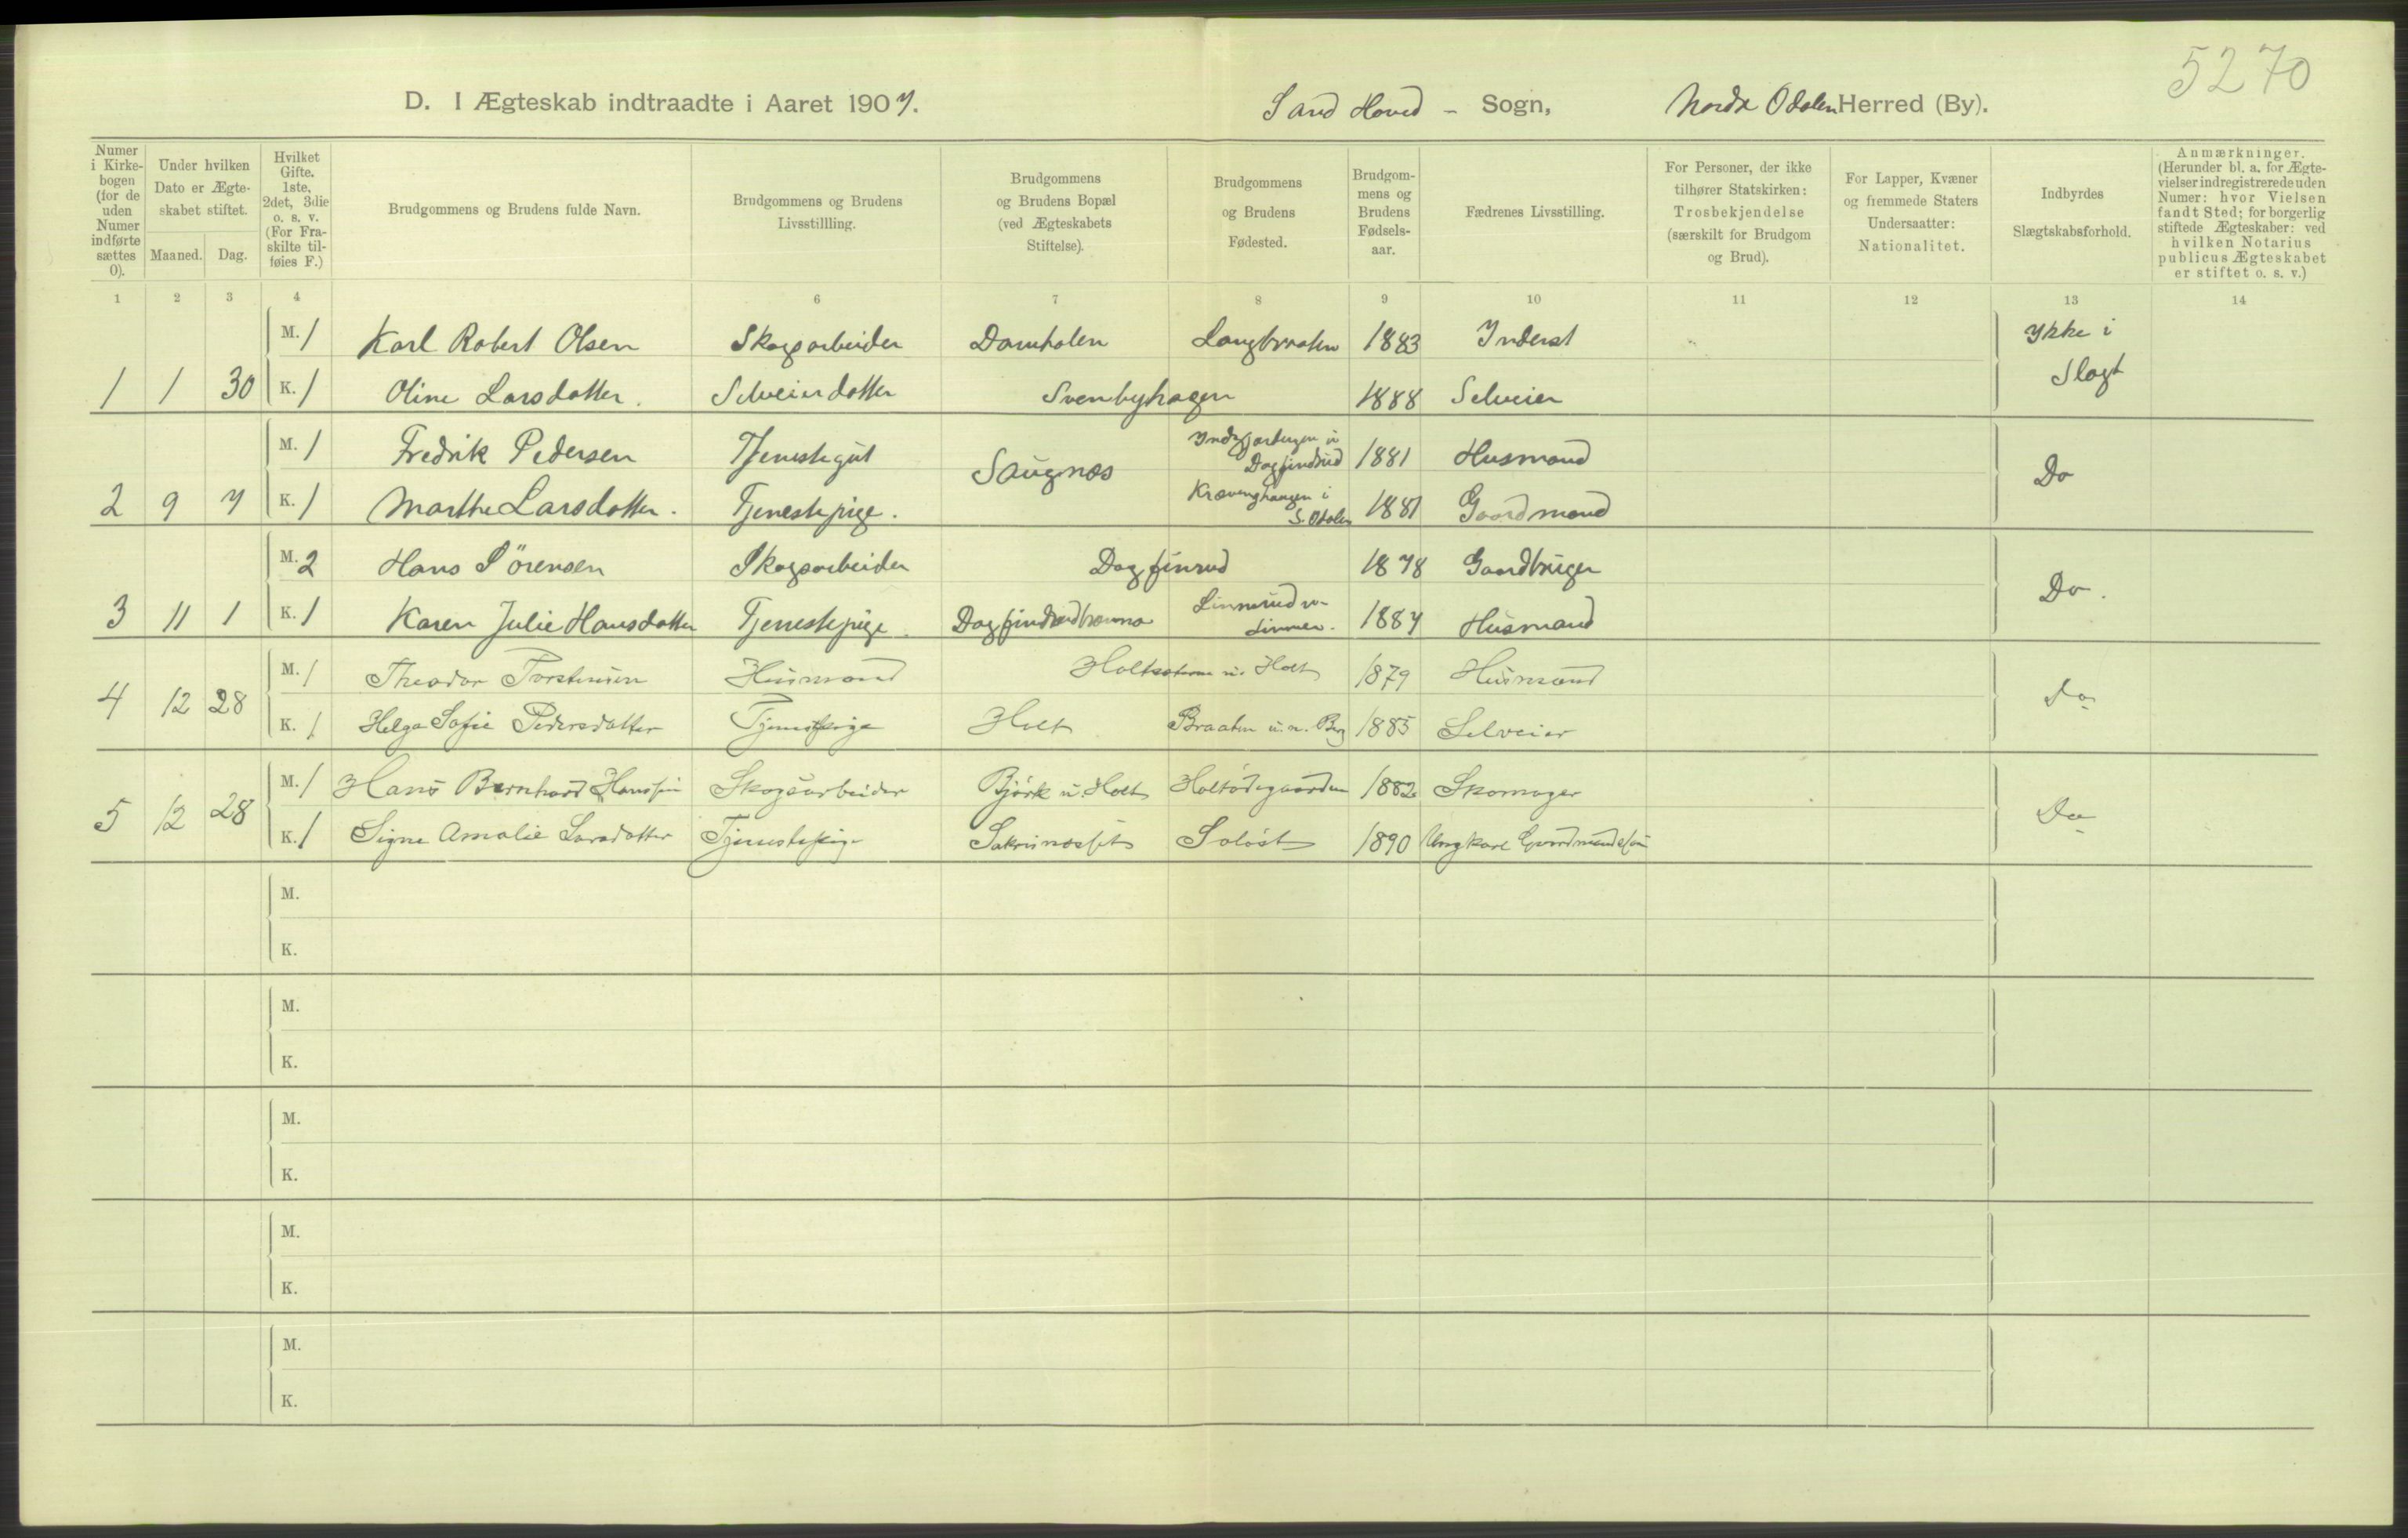 5270
D. I Ægteskab indtraadte i Aaret 1907. Sand Hoved - Sogn, Nordr Odalen Herred (By).
Numer i Kirkebogen (for de uden Numer indførte sættes 0).
Under hvilken Dato er Ægteskabet stiftet.
Maaned. Dag.
Hvilket Gifte. 1ste, 2det, 3die o. s. v. (For Fraskilte tilføies F.)
Brudgommens og Brudens fulde Navn.
Brudgommens og Brudens Livsstillling.
Brudgommens og Brudens Bopæl (ved Ægteskabets Stiftelse).
Brudgommens og Brudens Fødested.
Brudgommens og Brudens Fødselsaar.
Fædrenes Livsstilling.
For Personer, der ikke tilhører Statskirken: Trosbekjendelse (særskilt for Brudgom og Brud).
For Lapper, Kvæner og fremmede Staters Undersaatter: Nationalitet.
Indbyrdes Slægtskabsforhold.
Anmærkninger. (Herunder bl. a. for Ægtevielser indregistrerede uden Numer: hvor Vielsen fandt Sted; for borgerlig stiftede Ægteskaber: ved hvilken Notarius publicus Ægteskabet er stiftet o. s. v.)
1 2 3 4 6 7 8 9 10 11 12 13 14
M. 1 Karl Robert Olsen Skogsarbeider Damholen Langbraaten 1883 Inderst Ykke i
1 1 30 K. 1 Oline Larsdatter. Selveierdatter Svenbyhagen 1888 Selveier Slagt
M. 1 Fredrik Pedersen Tjenestegut Saugnæs Dagfindrud 1881 Husmand Do
2 9 7 K. 1 Marthe Larsdatter. Tjenestepige. S. Odalen 1881 Gaardmand
M. 2 Hans Sörensen Skogsarbeider Dagfinrud 1878 Gaardbruger Do.
3 11 1 K. 1 Karen Julie Hansdatter Tjenestepige. Linnerud 1887 Husmand
M. 1 Theodor Torstensen Husmand Holt 1879 Husmand Do
4 12 28 K. 1 Helga Sofie Pedersdatter Tjenestepige Holt Braaten u. n. Berg 1885 Selveier
M. 1 Hans Bernhard Hanssen Skogsarbeider Björk u. Holt Holtödegaarden 1882 Skomager Do
5 12 28 K. 1 Signe Amalie Larsdatter Tjenestepige Soløst 1890 Ungkarl Gaardmandssøn
M.
K.
M.
K.
M.
K.
M.
K.
M.
K.